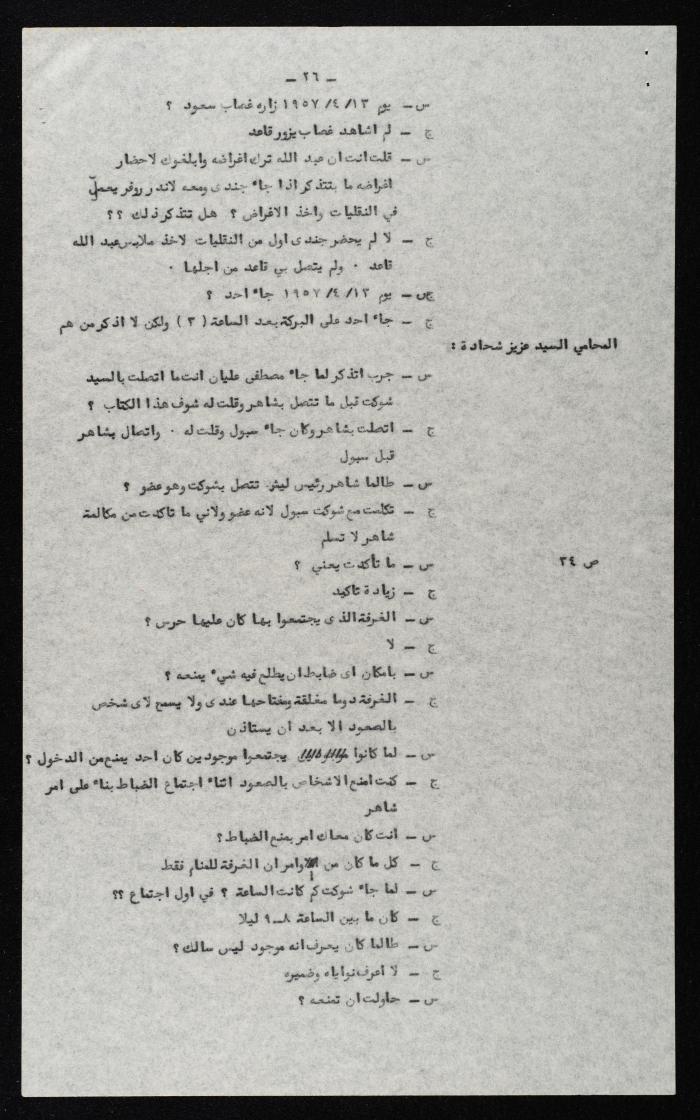 – ٢٦ –
س – يوم ١٣/ ٤/ ١٩٥٧ زاره غصاب سعود ؟
ج – لم اشاهد غصاب يزور قاعد
س – قلت انت ان عبد الله ترك اغراضه وابلغوك لاحضار
اغراضه ما بتتذكر اذا جاء جندى ومعه لاندر روفر يعمل
في النقليات واخذ الاغراض ؟ هل تتذكر ذلك ؟؟
ج – لا لم يحضر جندى اول من النقليات لاخذ ملابس عبد الله
قاعد ٠ ولم يتصل بي قاعد من اجلها ٠
س – يوم ١٣/ ٤/ ١٩٥٧ جاء احد ؟
ج – جاء احد على البركة بعد الساعة ( ٣ ) ولكن لا اذكر من هم
المحامي السيد عزيز شحادة :
س – جرب اتذكر لما جاء مصطفى عليان انت ما اتصلت بالسيد
شوكت قبل ما تتصل بشاهر وقلت له شوف هذا الكتاب ؟
ج – اتصلت بشاهر وكان جاء سبول وقلت له ٠ واتصال بشاهر
قبل سبول
س – طالما شاهر رئيس ليش تتصل بشوكت وهو عضو ؟
ج – تكلمت مع شوكت سبول لانه عضو ولاني ما تاكدت من مكالمة
شاهر لا تسلم
س – ما تأكدت يعني ؟
ص ٣٤
ج – زيادة تاكيد
س – الغرفة الذى يجتمعوا بها كان عليها حرس ؟
ج – لا
س – بامكان اى ضابط ان يطلع فيه شيء يمنعه ؟
ج – الغرفة دوما مغلقة ومفتاحها عندى ولا يسمح لاى شخص
بالصعود الا بعد ان يستاذن
س – لما كانوا يجتمعوا موجودين كان احد يمنع من الدخول ؟
ج – كنت امنع الاشخاص بالصعود اثناء اجتماع الضباط بناء على امر
شاهر
س – انت كان معاك امر بمنع الضباط ؟
ج – كل ما كان من اوامر ان الغرفة للمنام فقط
س – لما جاء شوكت كم كانت الساعة ؟ في اول اجتماع ؟؟
ج – كان ما بين الساعة ٨–٩ ليلا
س – طالما كان يعرف انه موجود ليس سالك ؟
ج – لا اعرف نواياه وضميره
س – حاولت ان تمنعه ؟